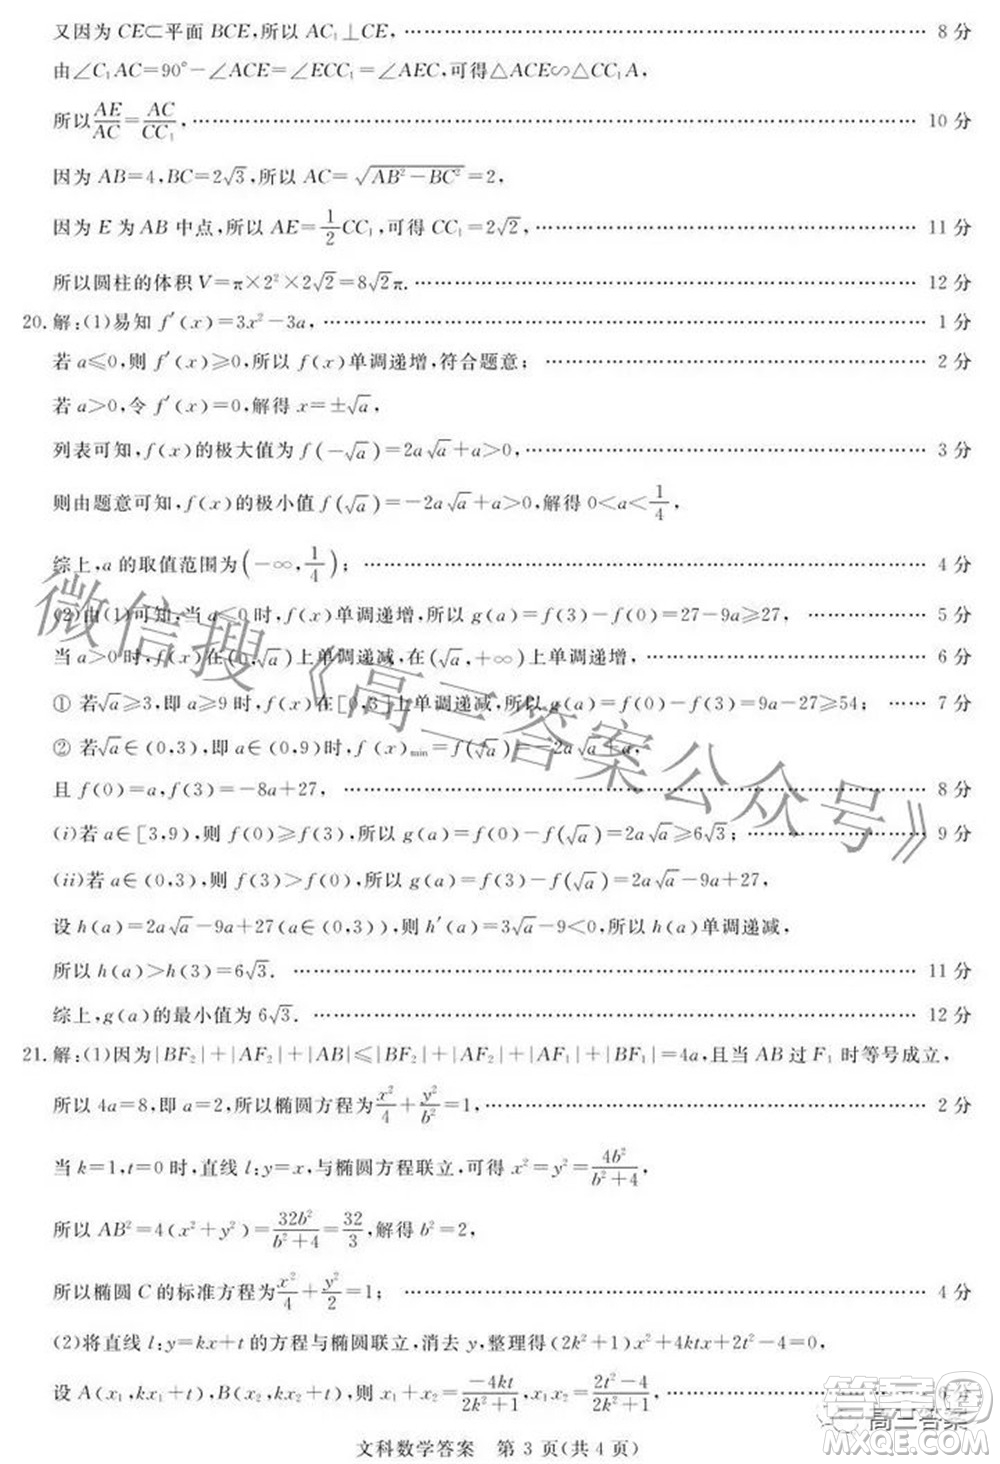 又因为 CE⊂平面 BCE,所以 AC₁⊥CE, …… 8 分
由∠C₁AC=90°-∠ACE=∠ECC₁=∠AEC,可得△ACE∽△CC₁A,
所以 AE/AC = AC/CC₁, …… 10 分
因为 AB=4,BC=2√3,所以 AC=√(AB²-BC²)=2,
因为 E 为 AB 中点,所以 AE=1/2 CC₁,可得 CC₁=2√2, …… 11 分
所以圆柱的体积 V=π×2²×2√2=8√2π. …… 12 分
20. 解:(1)易知 f′(x)=3x²-3a, …… 1 分
若 a≤0,则 f′(x)≥0,所以 f(x)单调递增,符合题意; …… 2 分
若 a>0,令 f′(x)=0,解得 x=±√a,
列表可知,f(x)的极大值为 f(-√a)=2a√a+a>0, …… 3 分
则由题意可知,f(x)的极小值 f(√a)=-2a√a+a>0,解得 0<a<1/4,
综上,a 的取值范围为(-∞,1/4); …… 4 分
(2)由(1)可知,当 a≤0 时,f(x)单调递增,所以 g(a)=f(3)-f(0)=27-9a≥27, …… 5 分
当 a>0 时,f(x)在(0,√a)上单调递减,在(√a,+∞)上单调递增, …… 6 分
① 若√a≥3,即 a≥9 时,f(x)在[0,3]上单调递减,所以 g(a)=f(0)-f(3)=9a-27≥54; …… 7 分
② 若√a∈(0,3),即 a∈(0,9)时,f(x)min=f(√a)=-2a√a+a,
且 f(0)=a,f(3)=-8a+27, …… 8 分
(i)若 a∈[3,9),则 f(0)≥f(3),所以 g(a)=f(0)-f(√a)=2a√a≥6√3; …… 9 分
(ii)若 a∈(0,3),则 f(3)>f(0),所以 g(a)=f(3)-f(√a)=2a√a-9a+27,
设 h(a)=2a√a-9a+27(a∈(0,3)),则 h′(a)=3√a-9<0,所以 h(a)单调递减,
所以 h(a)>h(3)=6√3. …… 11 分
综上,g(a)的最小值为 6√3. …… 12 分
21. 解:(1)因为|BF₂|+|AF₂|+|AB|≤|BF₂|+|AF₂|+|AF₁|+|BF₁|=4a,且当 AB 过 F₁ 时等号成立,
所以 4a=8,即 a=2,所以椭圆方程为 x²/4+y²/b²=1, …… 2 分
当 k=1,t=0 时,直线 l:y=x,与椭圆方程联立,可得 x²=y²=4b²/(b²+4),
所以 AB²=4(x²+y²)=32b²/(b²+4)=32/3,解得 b²=2,
所以椭圆 C 的标准方程为 x²/4+y²/2=1; …… 4 分
(2)将直线 l:y=kx+t 的方程与椭圆联立,消去 y,整理得(2k²+1)x²+4ktx+2t²-4=0,
设 A(x₁,kx₁+t),B(x₂,kx₂+t),则 x₁+x₂=-4kt/(2k²+1),x₁x₂=(2t²-4)/(2k²+1), …… 6 分
文科数学答案 第 3 页(共 4 页)
微信搜《高三答案公众号》
高三答案
答案圈
MXQE.COM